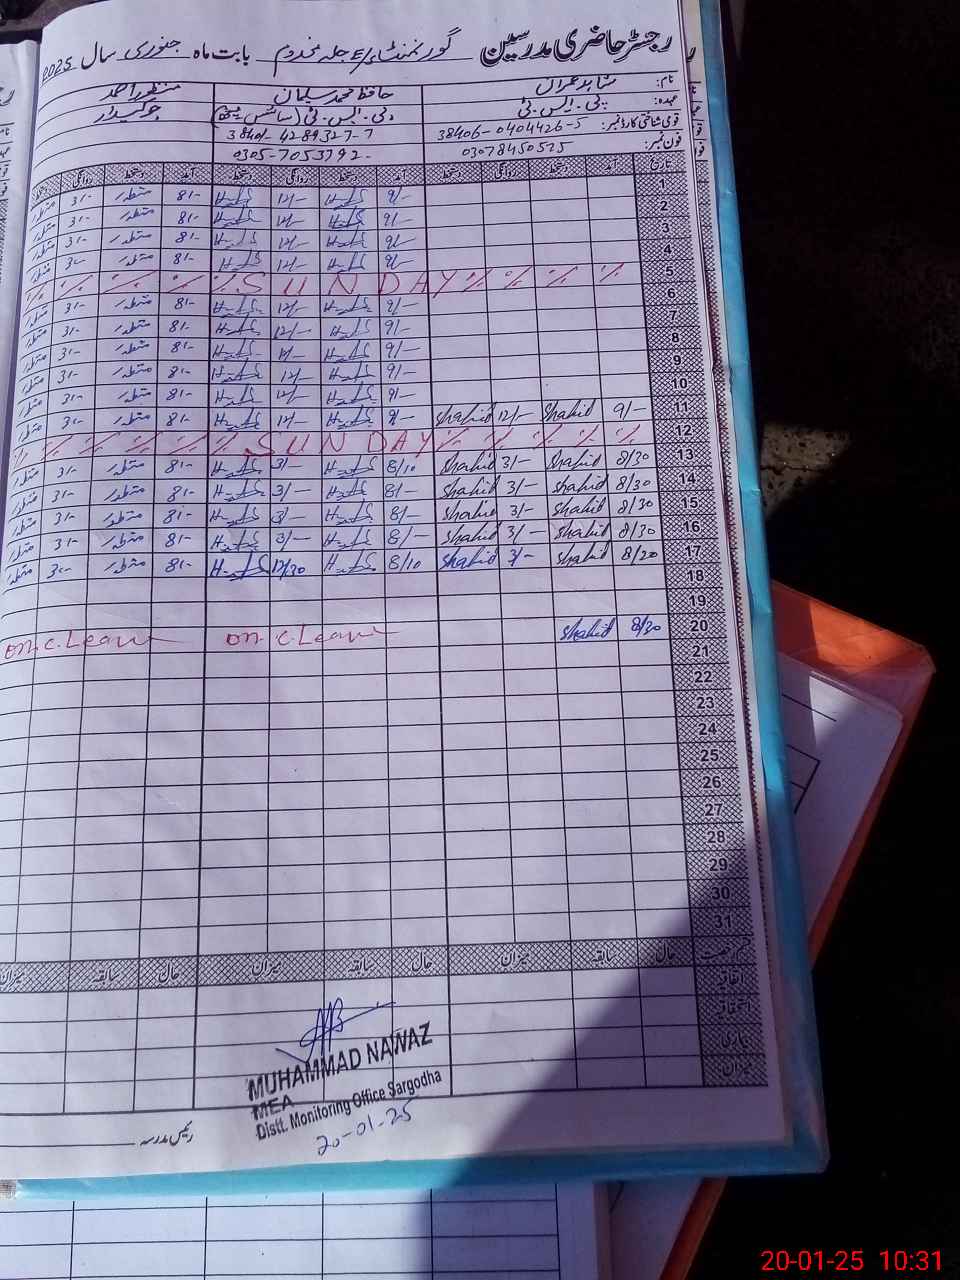 رجسٹر حاضری مدرسین گورنمنٹ E/S جلہ مخدوم بابت ماہ جنوری سال 2025
نام: شاہد عمران حافظ محمد سلیمان منظور احمد
عہدہ: پی۔ایس۔ٹی ای۔ایس۔ٹی (سائنس میتھ) چوکیدار
قومی شناختی کارڈ نمبر: 38406-0404426-5 38401-4289327-7
فون نمبر: 03078450515 0305-7053792
تاریخ آمد دستخط روانگی دستخط آمد دستخط روانگی دستخط آمد دستخط روانگی دستخط
1 9/- 12/- 8/- 3/-
2 9/- 12/- 8/- 3/-
3 9/- 12/- 8/- 3/-
4 9/- 12/- 8/- 3/-
5 SUNDAY
6 9/- 12/- 8/- 3/-
7 9/- 12/- 8/- 3/-
8 9/- 12/- 8/- 3/-
9 9/- 12/- 8/- 3/-
10 9/- 12/- 8/- 3/-
11 9/- Shahid 12/- Shahid 9/- 12/- 8/- 3/-
12 SUNDAY
13 8/30 Shahid 3/- Shahid 8/10 3/- 8/- 3/-
14 8/30 Shahid 3/- Shahid 8/- 3/- 8/- 3/-
15 8/30 Shahid 3/- Shahid 8/- 3/- 8/- 3/-
16 8/30 Shahid 3/- Shahid 8/- 3/- 8/- 3/-
17 8/20 Shahid 3/- Shahid 8/10 12/30 8/- 3/-
18
19
20 8/30 Shahid on C. Leave on C. Leave
21
22
23
24
25
26
27
28
29
30
31
قسم رخصت حال سابقہ میزان حال سابقہ میزان حال سابقہ میزان
اتفاقیہ
استحقاقیہ
بیماری
میزان
MUHAMMAD NAWAZ
MEA
Distt. Monitoring Office Sargodha
20-01-25
رئیس مدرسہ
20-01-25 10:31